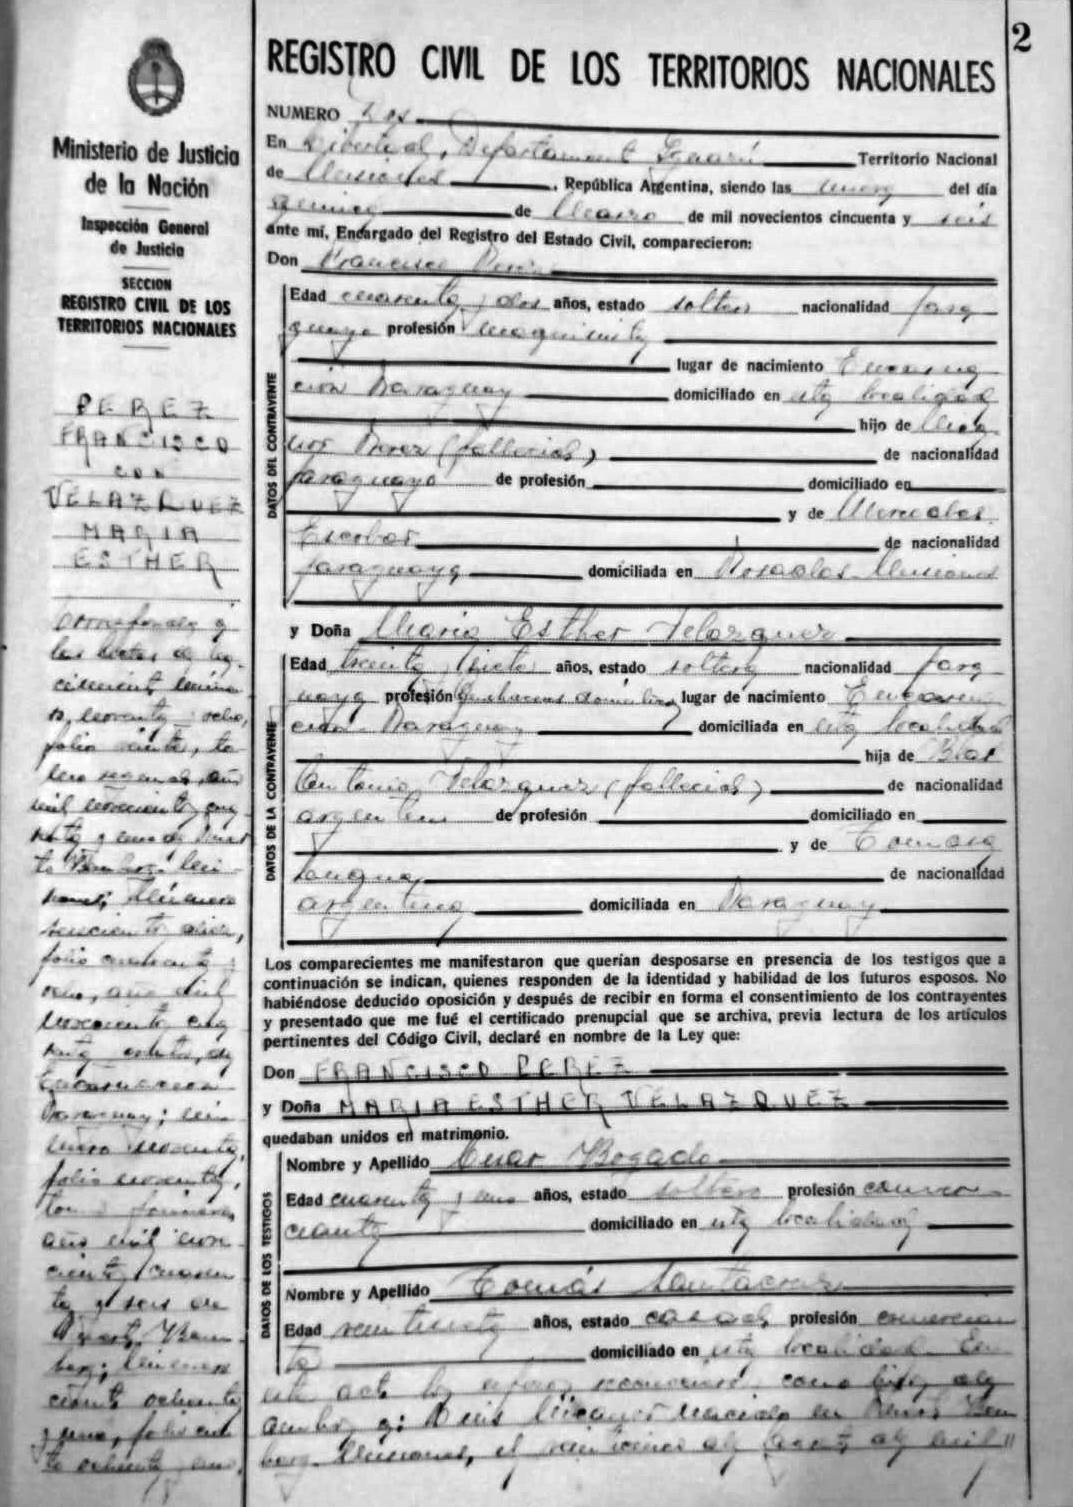 2
REGISTRO CIVIL DE LOS TERRITORIOS NACIONALES
NUMERO Dos
En Libertad, Departamento Iguazú Territorio Nacional
de Misiones, República Argentina, siendo las nueve del día
quince de Marzo de mil novecientos cincuenta y seis
ante mí, Encargado del Registro del Estado Civil, comparecieron:
Don Francisco Perez
DATOS DEL CONTRAYENTE
Edad cuarenta y dos años, estado soltero nacionalidad para
guaya profesión maquinista
lugar de nacimiento Encarna
ción Paraguay domiciliado en esta localidad
hijo de
Perez (fallecido) de nacionalidad
paraguaya de profesión domiciliado en
y de Mercedes
Escobar de nacionalidad
paraguaya domiciliada en Posadas Misiones
y Doña Maria Esther Velazquez
DATOS DE LA CONTRAYENTE
Edad treinta y siete años, estado soltera nacionalidad para
guaya profesión Quehaceres domésticos lugar de nacimiento Encarna
ción Paraguay domiciliada en esta localidad
hija de Blas
Antonio Velazquez (fallecido) de nacionalidad
argentina de profesión domiciliado en
y de Tomasa
de nacionalidad
argentina domiciliada en Paraguay
Los comparecientes me manifestaron que querían desposarse en presencia de los testigos que a
continuación se indican, quienes responden de la identidad y habilidad de los futuros esposos. No
habiéndose deducido oposición y después de recibir en forma el consentimiento de los contrayentes
y presentado que me fué el certificado prenupcial que se archiva, previa lectura de los artículos
pertinentes del Código Civil, declaré en nombre de la Ley que:
Don FRANCISCO PEREZ
y Doña MARIA ESTHER VELAZQUEZ
quedaban unidos en matrimonio.
DATOS DE LOS TESTIGOS
Nombre y Apellido Cesar Bogado
Edad cuarenta y uno años, estado soltero profesión comer
ciante domiciliado en esta localidad
Nombre y Apellido Tomás Santacruz
Edad años, estado casado profesión comercian
te domiciliado en esta localidad. En
este acto los esposos reconocen como hijos de
ambos a: Luis nacido en Puerto Bem
berg Misiones, el veinticinco de de mil
Ministerio de Justicia
de la Nación
Inspección General
de Justicia
SECCION
REGISTRO CIVIL DE LOS
TERRITORIOS NACIONALES
PEREZ
FRANCISCO
CON
VELAZQUEZ
MARIA
ESTHER
Corresponde a
las actas de na
cimiento núme
ro, noventa y ocho,
folio veinte, to
mo segundo, año
mil novecientos cua
renta y uno de Puer
to Bemberg Mi
siones; Número
seiscientos diez,
folio cuarenta y
ocho, año mil
novecientos cua
renta de
Encarnación
Paraguay; nú
mero noventa,
folio noventa,
tomo primero,
año mil nove
cientos cuaren
ta y seis de
Puerto Bem
berg; número
ciento ochenta
y uno, folio cien
to ochenta y uno,